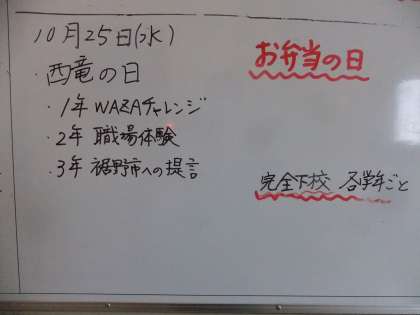 10月25日(水)
・西竜の日
・1年 WAZAチャレンジ
・2年 職場体験
・3年 裾野市への提言
お弁当の日
完全下校 各学年ごと